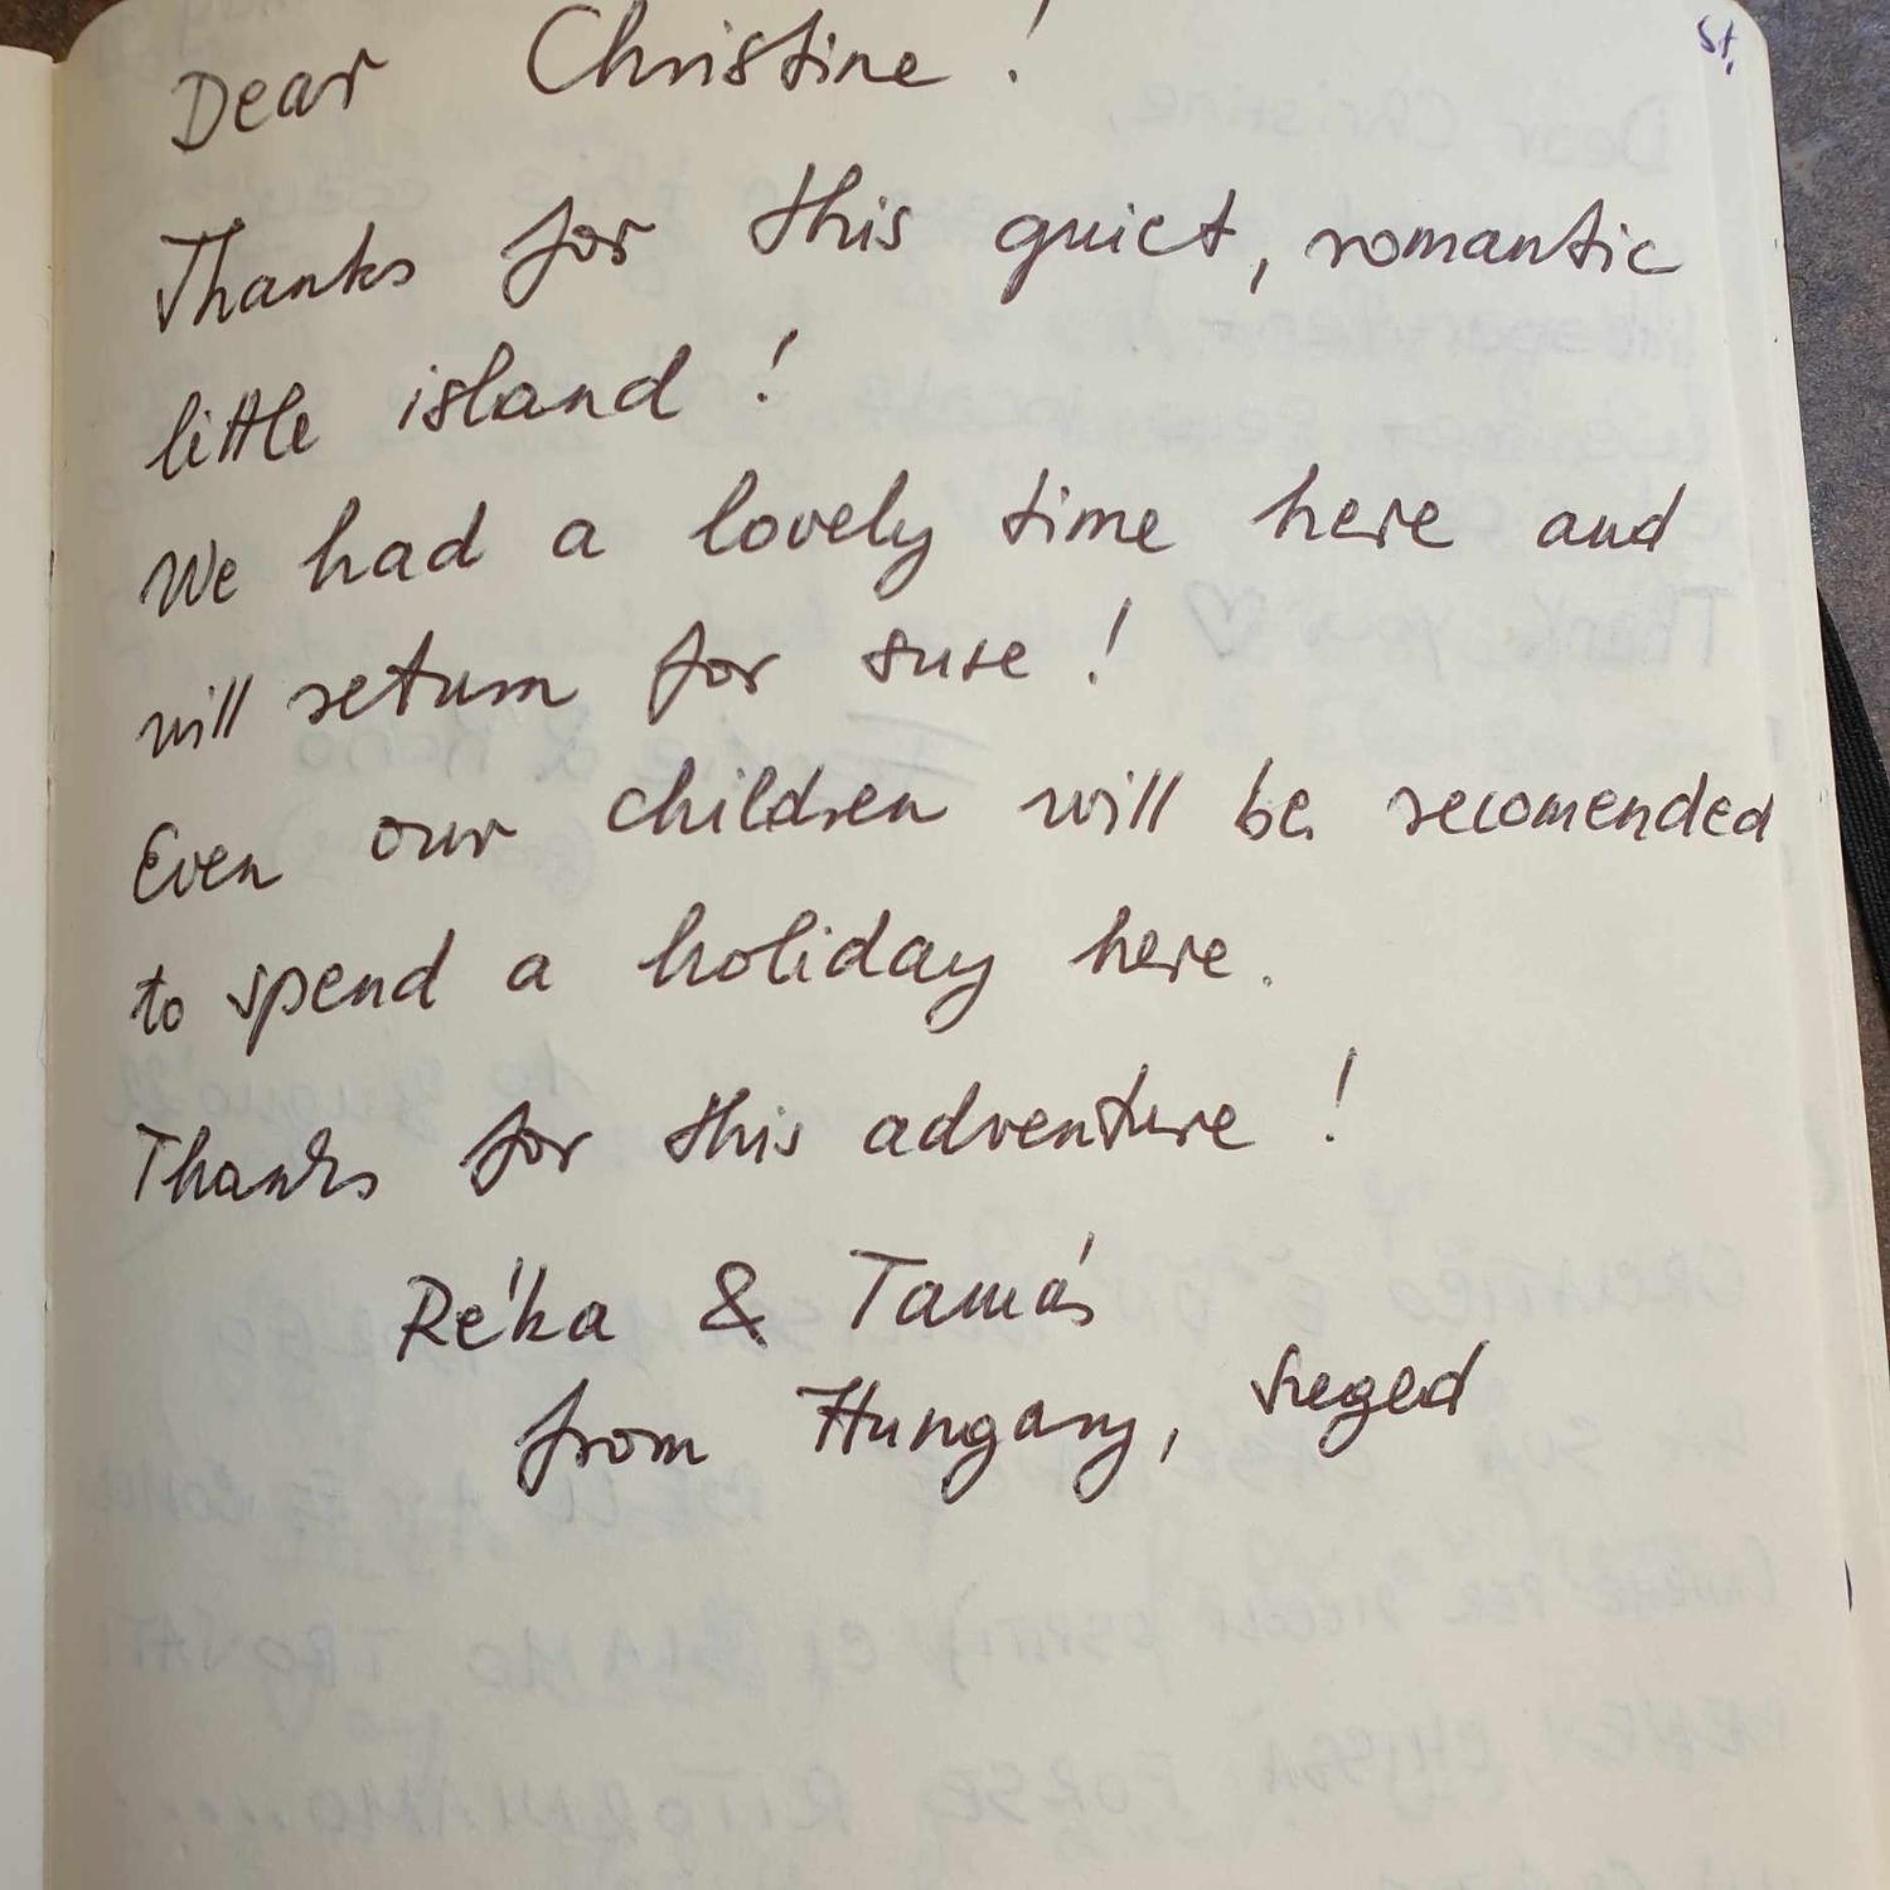 St.
Dear Christine!
Thanks for this quiet, romantic
little island!
We had a lovely time here and
will return for sure!
Even our children will be recomended
to spend a holiday here.
Thanks for this adventure!
Réka & Tamás
from Hungary, Szeged